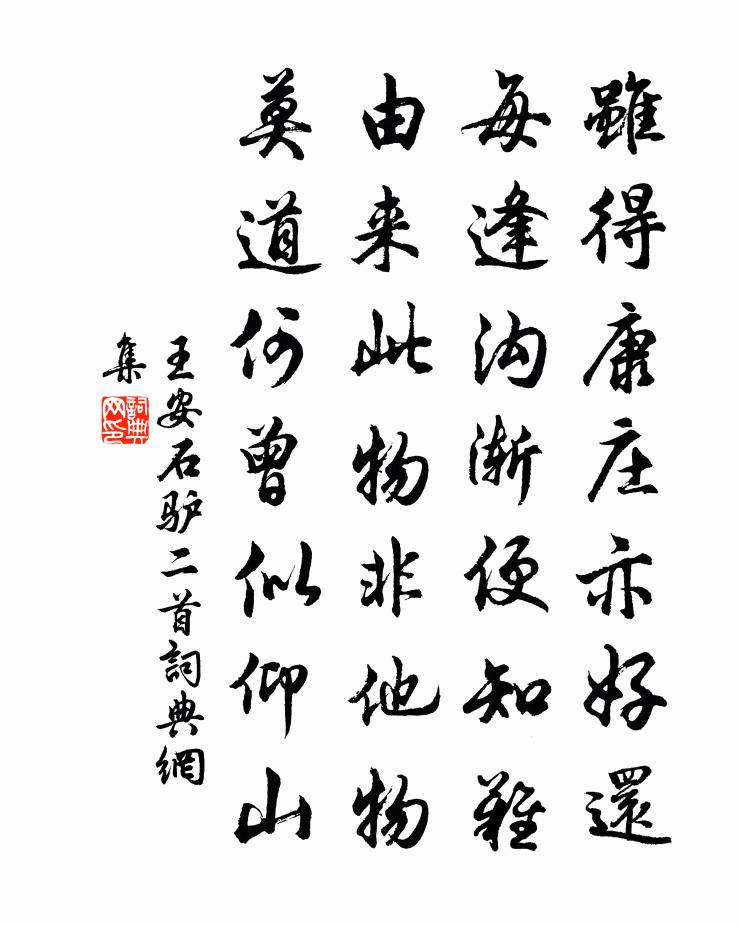 雖得康庄亦好還
每逢沟渐便知難
由来此物非他物
莫道何曾似仰山
王安石驴二首詞典網
集
詞典
网印